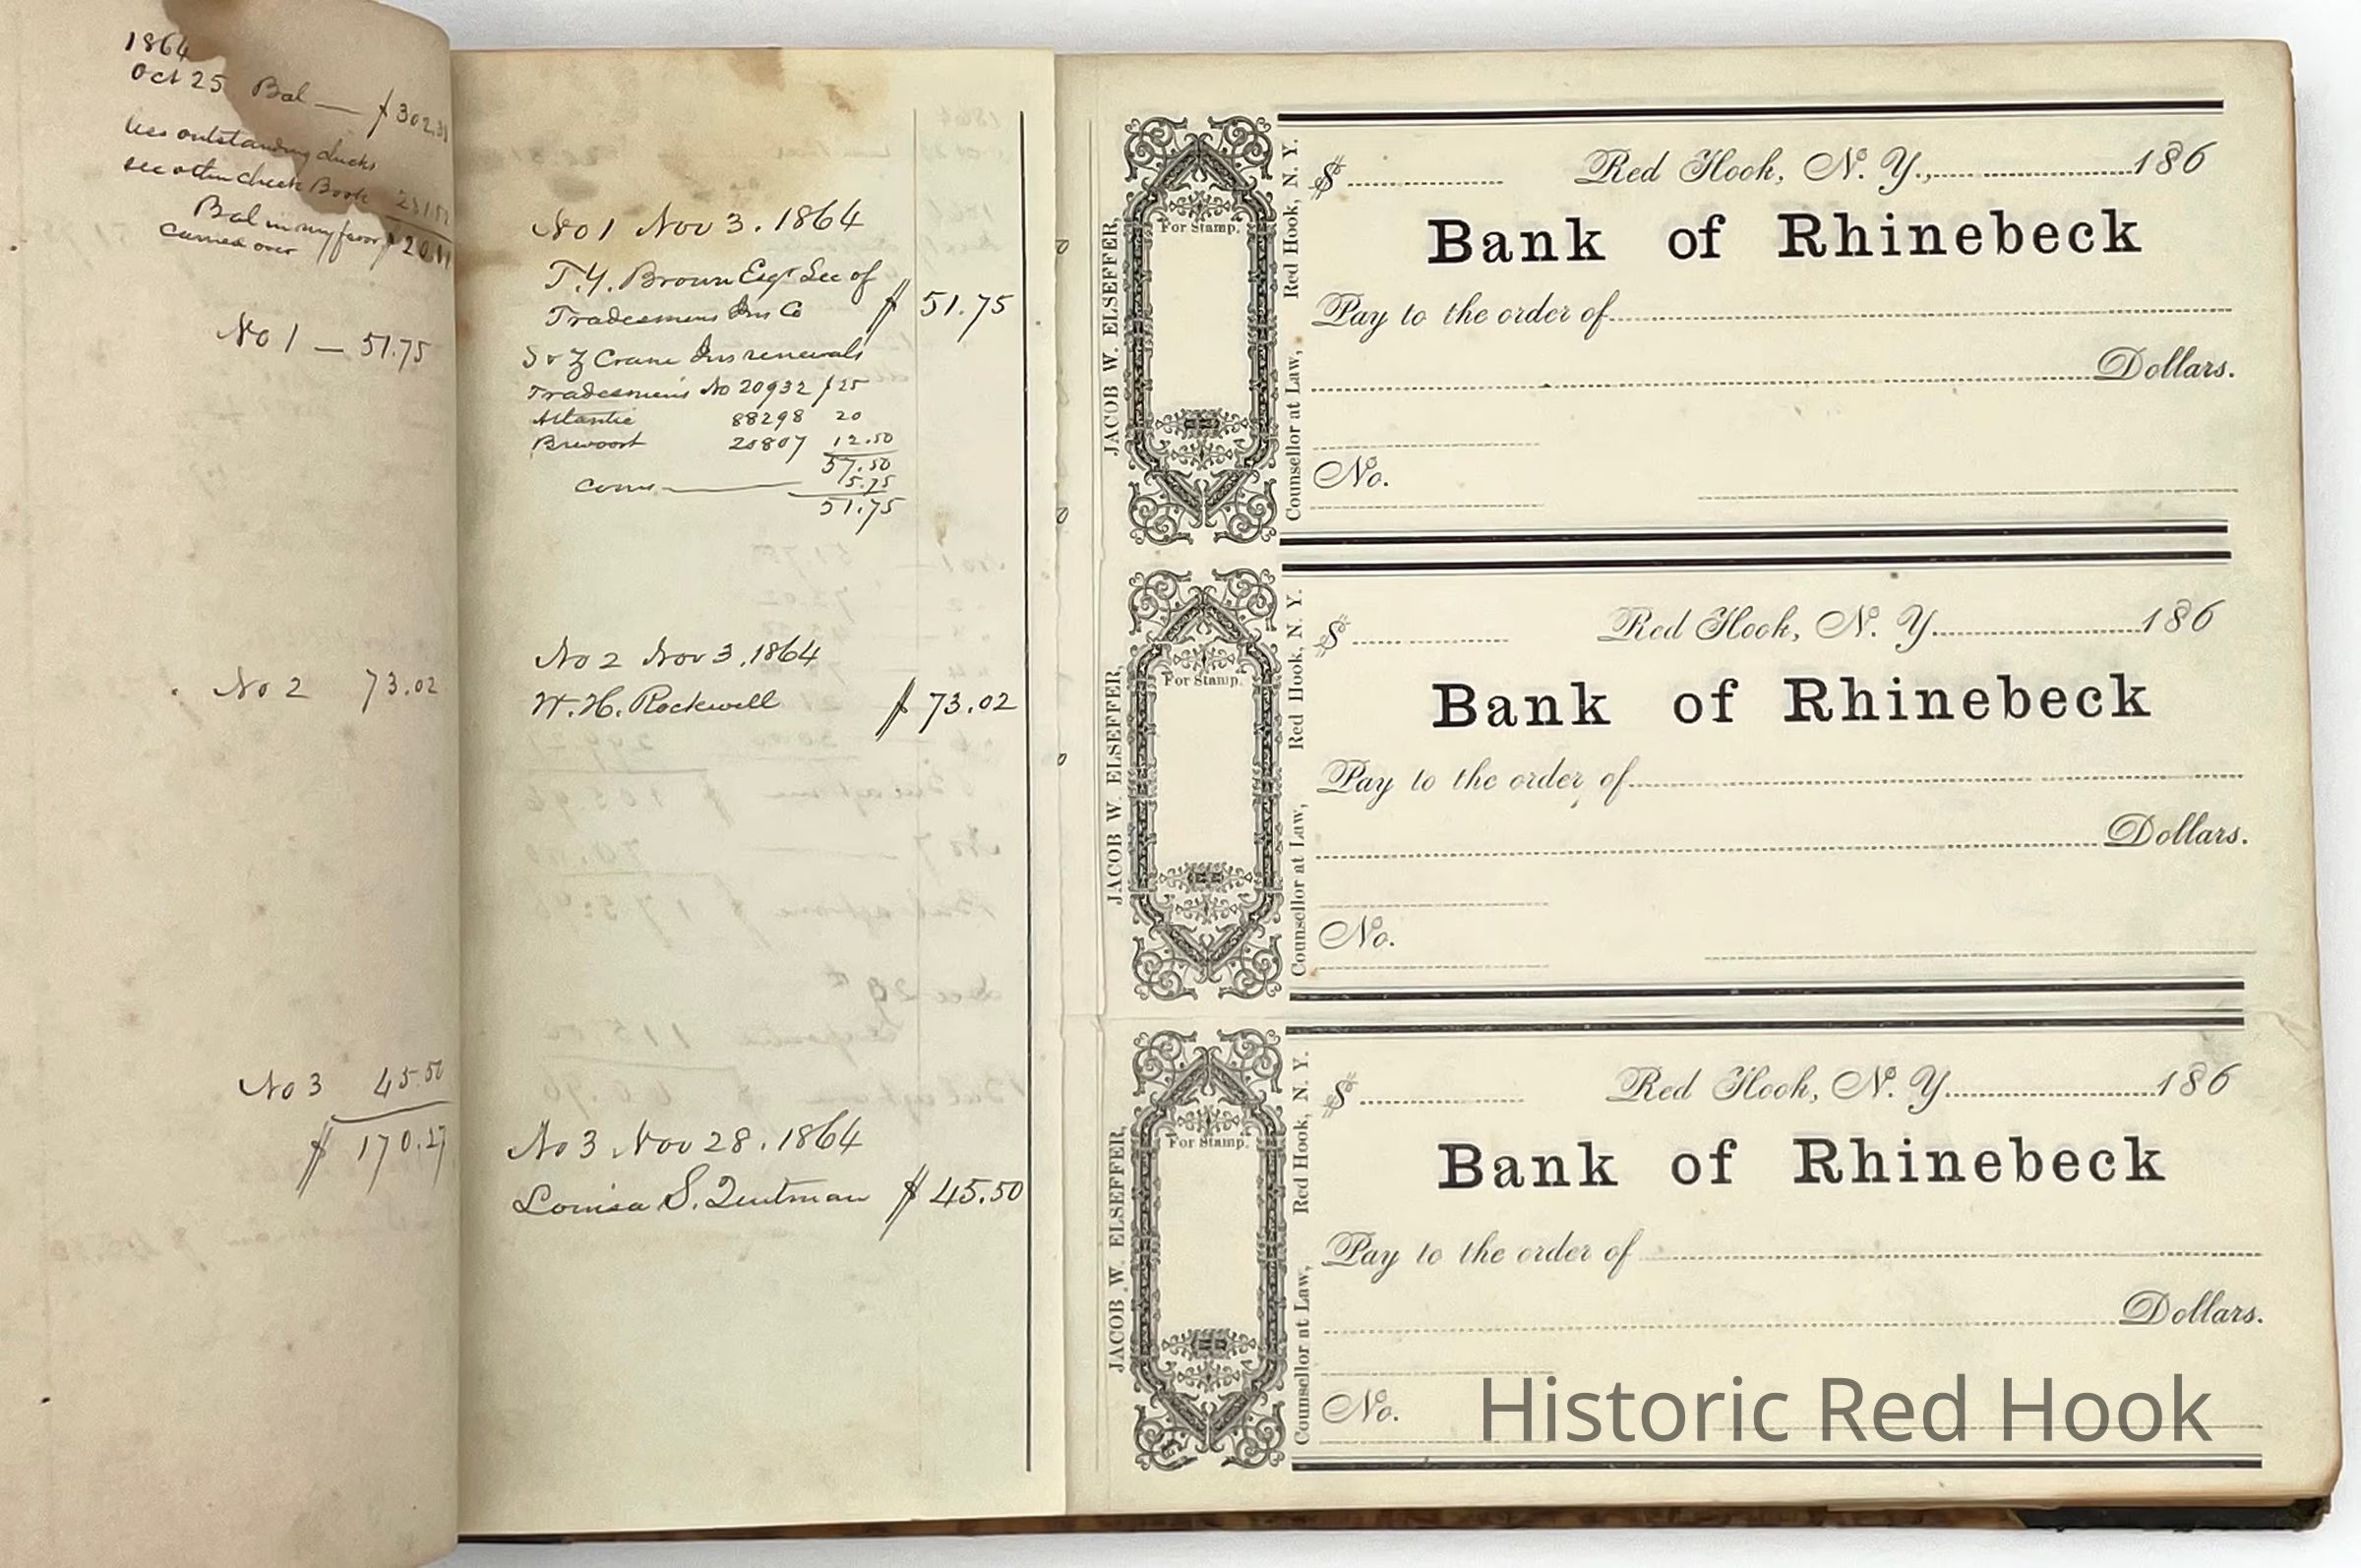 1864
Oct 25 Bal — $302.
less outstanding checks
see other check Book
Bal in my favor $20.
carried over
No 1 — 51.75
No 2 73.02
No 3 45.50
$ 170.27
No 1 Nov 3. 1864
T.Y. Brown Esqr Sec of
Tradesmens Ins Co $ 51.75
S & Z Crane Ins renewals
Tradesmen's No 20932 $25
Atlantic 88298 20
Brevoort 20807 12.50
57.50
Coms — 5.75
51.75
No 2 Nov 3. 1864
W. H. Rockwell $ 73.02
No 3 Nov 28. 1864
Louisa S. $ 45.50
JACOB W. ELSEFFER,
For Stamp.
Counsellor at Law, Red Hook, N. Y.
$ Red Hook, N. Y., 186
Bank of Rhinebeck
Pay to the order of
Dollars.
No.
JACOB W. ELSEFFER,
For Stamp.
Counsellor at Law, Red Hook, N. Y.
$ Red Hook, N. Y. 186
Bank of Rhinebeck
Pay to the order of
Dollars.
No.
JACOB W. ELSEFFER,
For Stamp.
Counsellor at Law, Red Hook, N. Y.
$ Red Hook, N. Y. 186
Bank of Rhinebeck
Pay to the order of
Dollars.
No.
Historic Red Hook